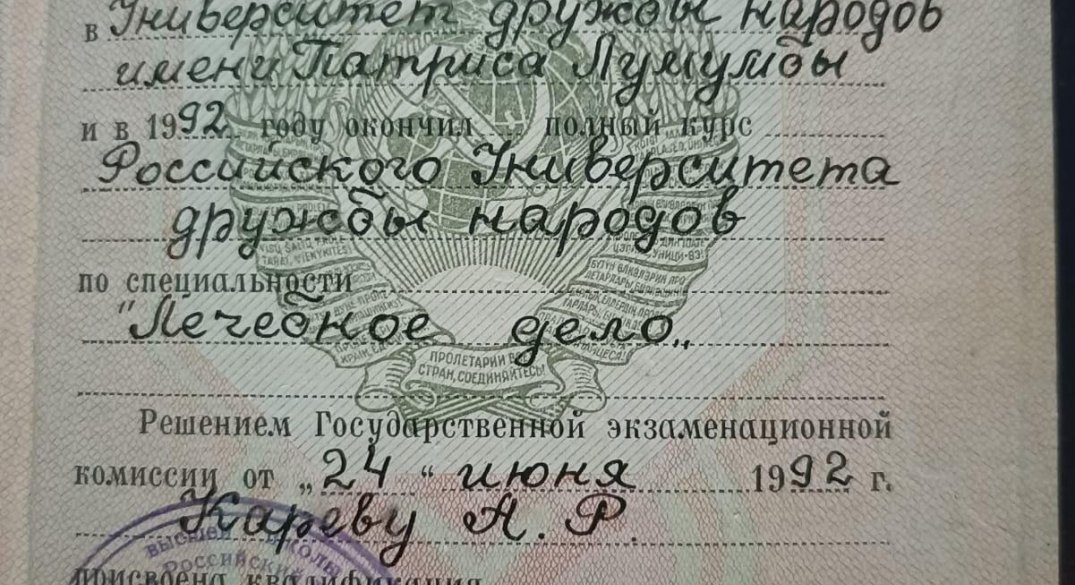 в Университет дружбы народов
имени Патриса Лумумбы
и в 1992 году окончил полный курс
Российского Университета
дружбы народов
по специальности
"Лечебное дело"
ПРОЛЕТАРИИ В
СТРАН, СОЕДИНЯЙТЕСЬ!
Решением Государственной экзаменационной
комиссии от „24“ июня 1992 г.
Кареву А. Р.
ВЫСШЕЙ ШКОЛЫ
РОССИЙСКИЙ
присвоена квалификация